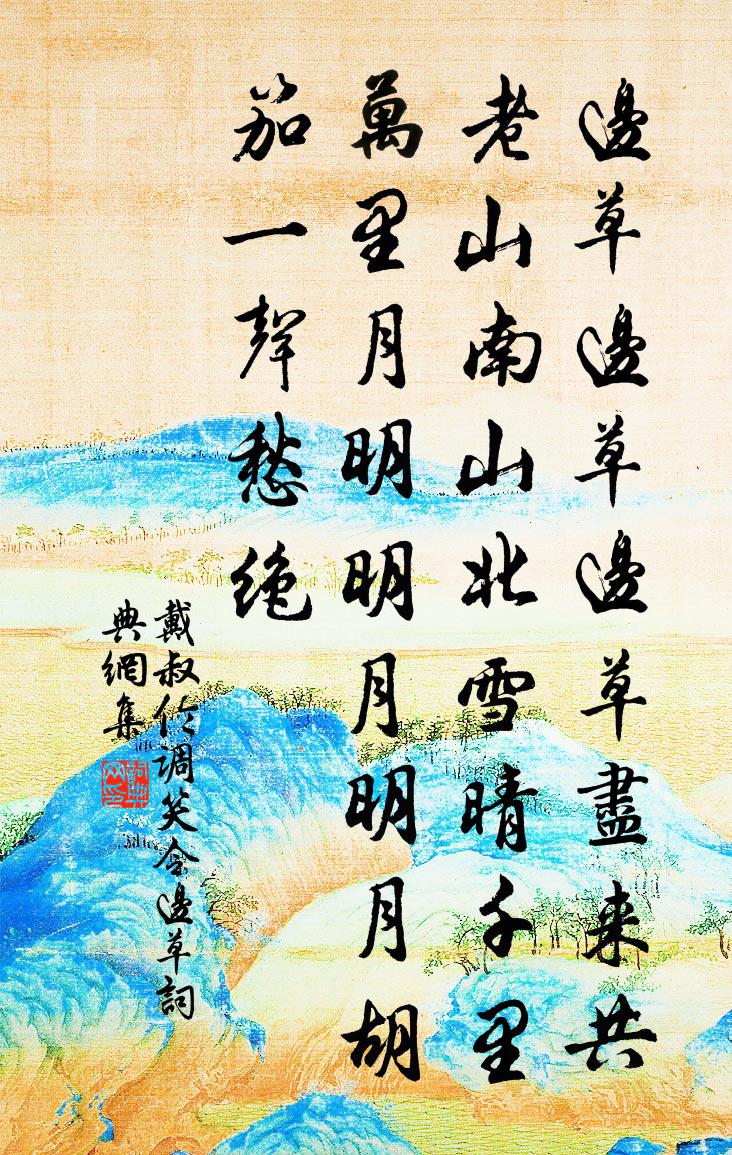 邊草邊草邊草盡来共
老山南山北雪晴千里
萬里月明明月明月胡
笳一聲愁絶
戴叔伦调笑令邊草詞
典網集